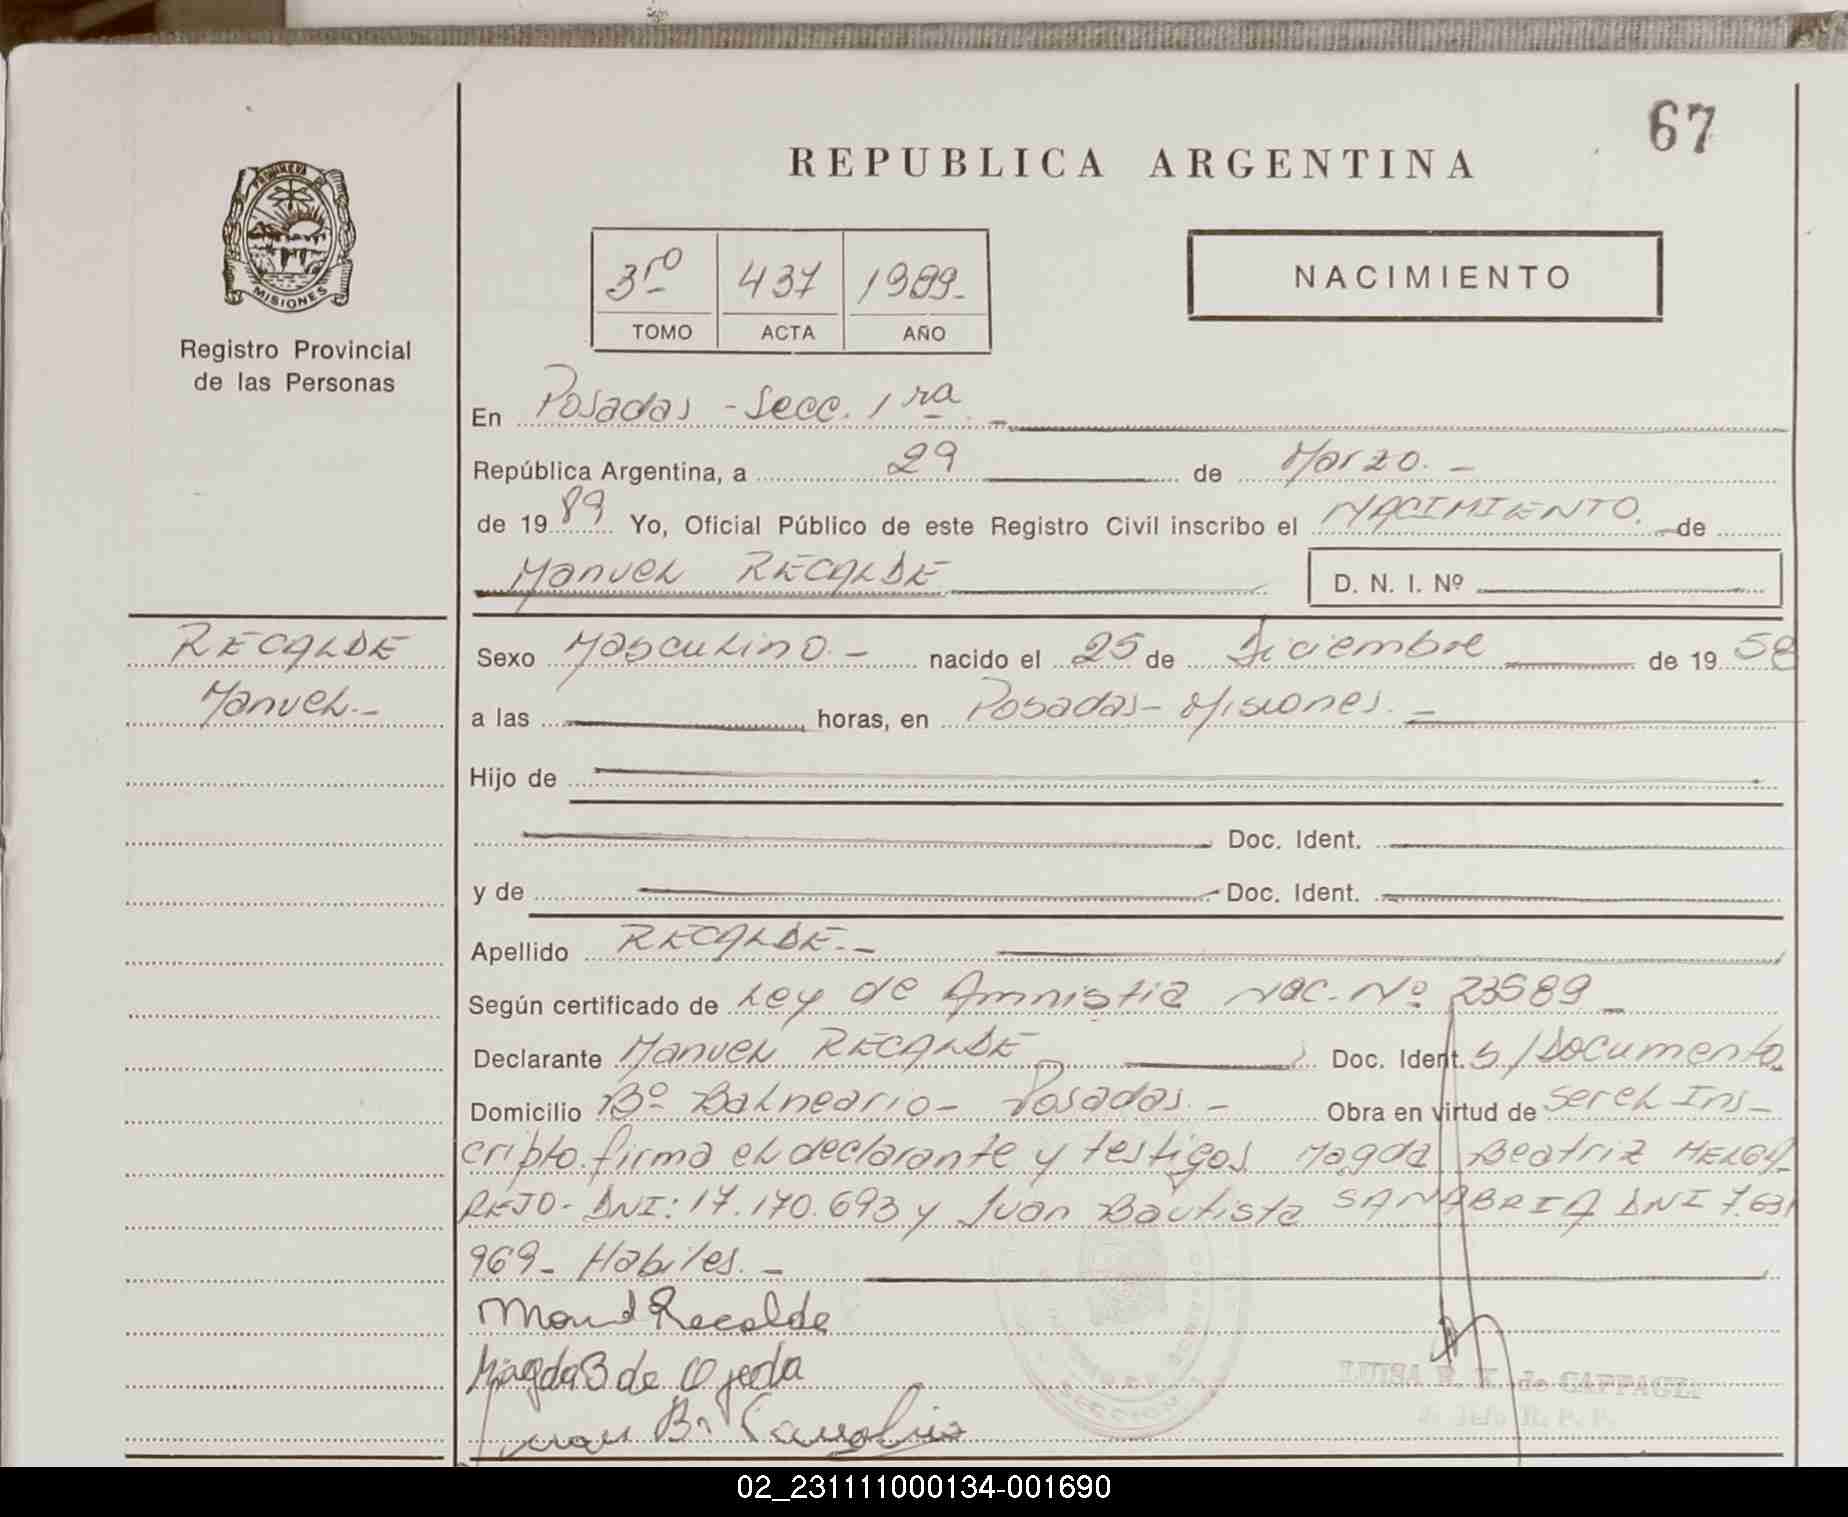 67
REPUBLICA ARGENTINA
PROVINCIA DE
MISIONES
Registro Provincial
de las Personas
3ro 437 1989-
TOMO ACTA AÑO
NACIMIENTO
En Posadas - Secc. 1ra. -
República Argentina, a 29 de Marzo. -
de 1989 Yo, Oficial Público de este Registro Civil inscribo el NACIMIENTO. de
Manuel RECALDE D. N. I. Nº
RECALDE
Manuel.-
Sexo Masculino. - nacido el 25 de Diciembre de 1958
a las horas, en Posadas - Misiones. -
Hijo de
Doc. Ident.
y de Doc. Ident.
Apellido RECALDE. -
Según certificado de Ley de Amnistia Nac. Nº 23589 -
Declarante Manuel RECALDE Doc. Ident. S/Documento.
Domicilio Bº Balneario - Posadas. - Obra en virtud de ser el Ins-
cripto. firma el declarante y testigos Magda Beatriz MELGA-
REJO - DNI: 17.170.693 y Juan Bautista SANABRIA DNI 7.631
969 - Habiles. -
Manuel Recalde
Magda B de Ojeda
Juan B. Sanabria
SECCION
LUISA de
02_231111000134-001690